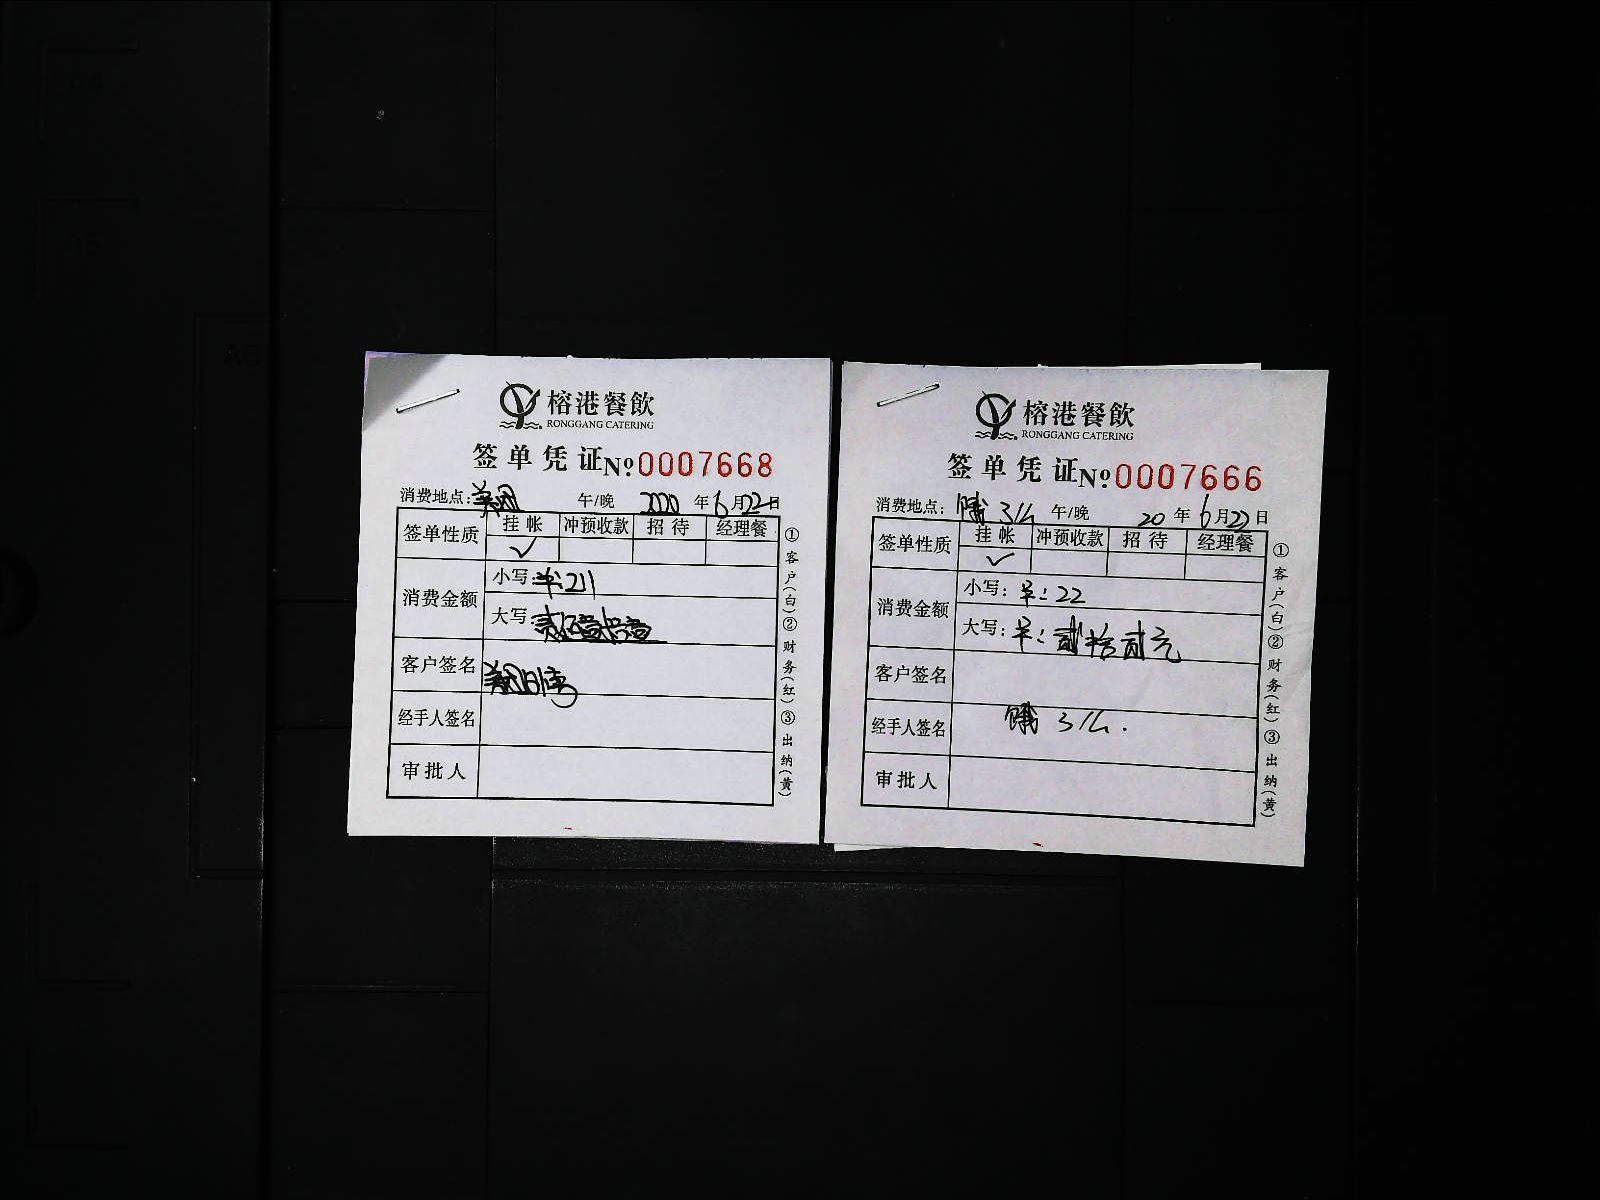 榕港餐飲
RONGGANG CATERING
签单凭证№0007668
消费地点: 午/晚 2020年6月22日
签单性质 挂帐 冲预收款 招待 经理餐
✓
消费金额 小写:¥:211
大写:贰佰壹拾壹
客户签名
经手人签名
审批人
①客户(白)②财务(红)③出纳(黄)
榕港餐飲
RONGGANG CATERING
签单凭证№0007666
消费地点: 午/晚 20年6月22日
签单性质 挂帐 冲预收款 招待 经理餐
✓
消费金额 小写:¥:22
大写:¥:贰拾贰元
客户签名
经手人签名
审批人
①客户(白)②财务(红)③出纳(黄)